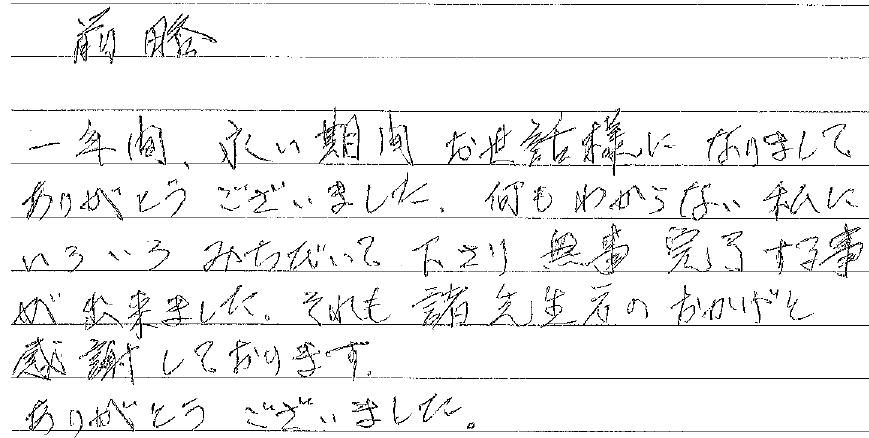 前略
一年間、永い期間 お世話様に なりまして
ありがとう ございました。何も わからない 私に
いろいろ みちびいて 下さり 無事 完了する事
が 出来ました。それも 諸先生方の おかげと
感謝しております。
ありがとう ございました。